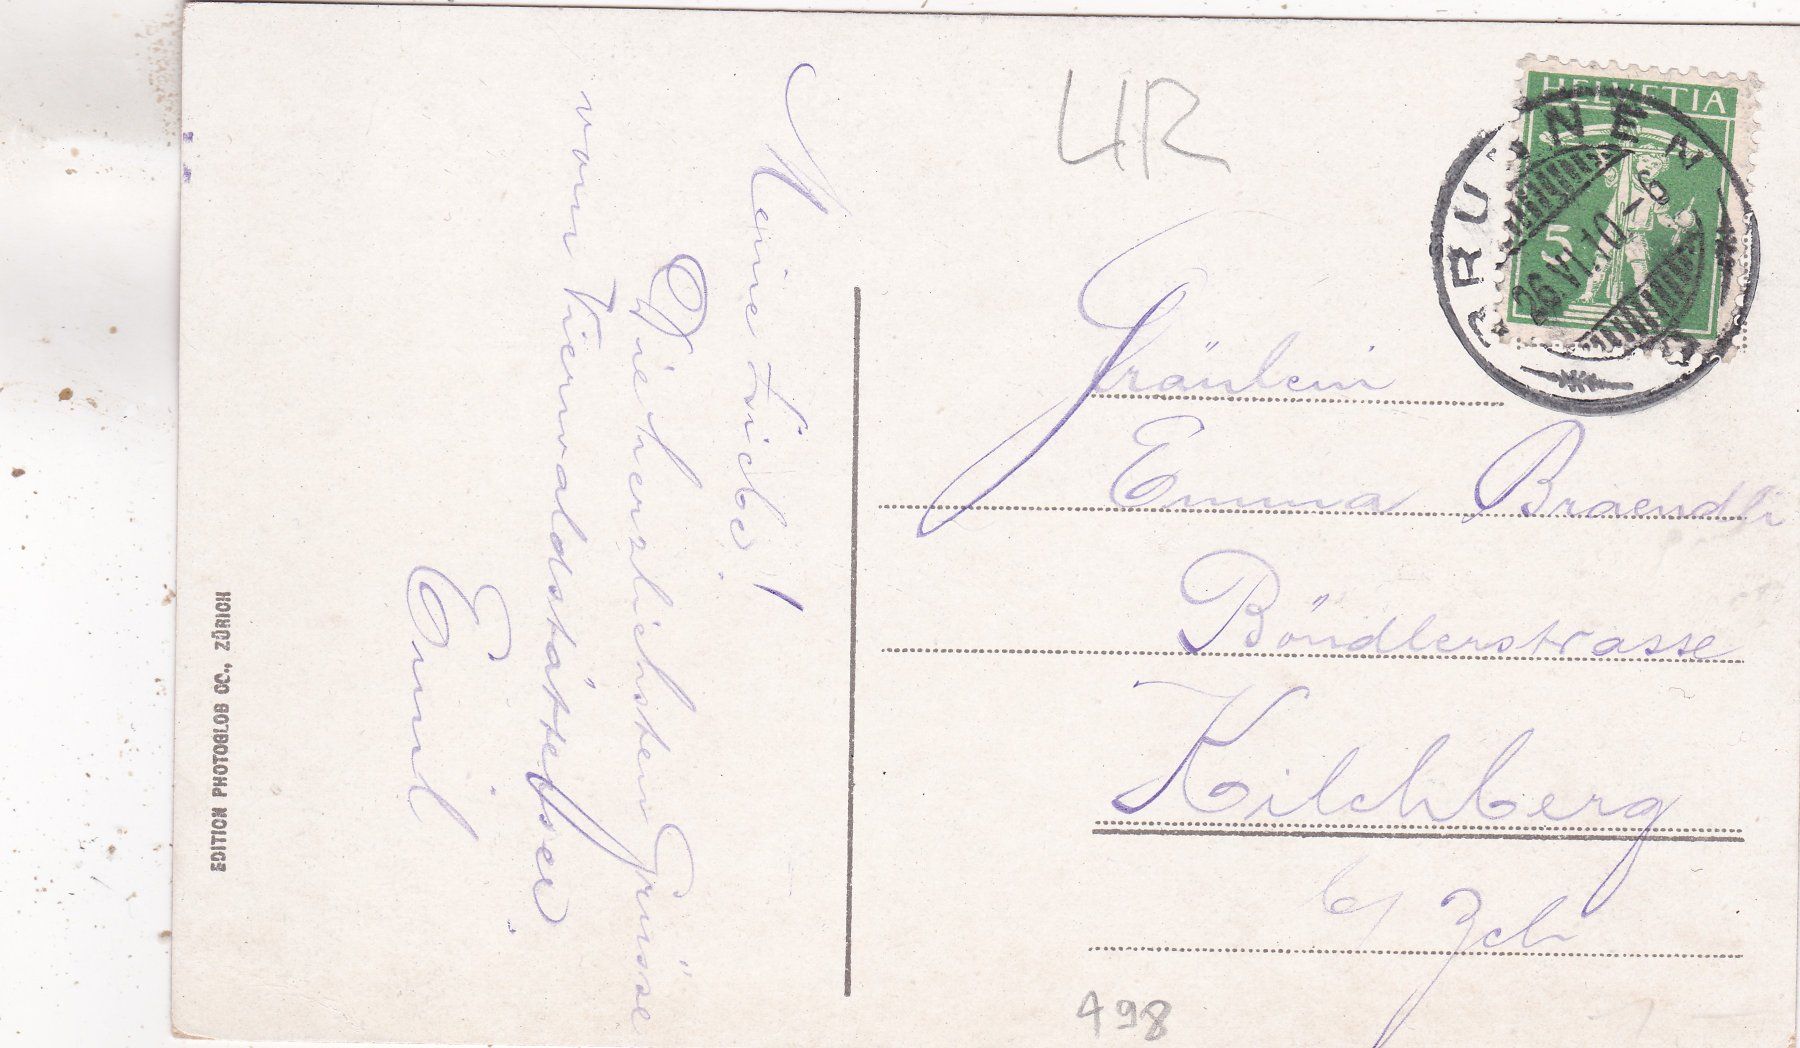 Meine Liebe!
Die herzlichsten Grüsse
vom Vierwaldstättersee.
Emil
EDITION PHOTOGLOB CO., ZÜRICH
UR
HELVETIA
5
BRUNNEN
26.VI.10-6
Fräulein
Emma Braendli
Böndlerstrasse
Kilchberg
b/ Zch
498